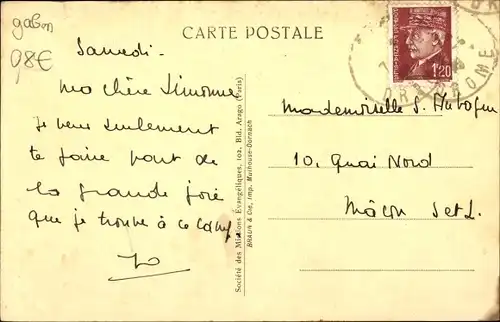 gabon
98€
CARTE POSTALE
Samedi.
Ma chère Simonne
Je veux seulement
te faire part de
la grande joie
que je trouve à ce camp
Société des Missions Évangéliques, 102, Bld. Arago (Paris)
BRAUN & Cie, Imp. Mulhouse-Dornach
1F20
DROME
Mademoiselle S.
10, Quai Nord
Mâcon S et L.